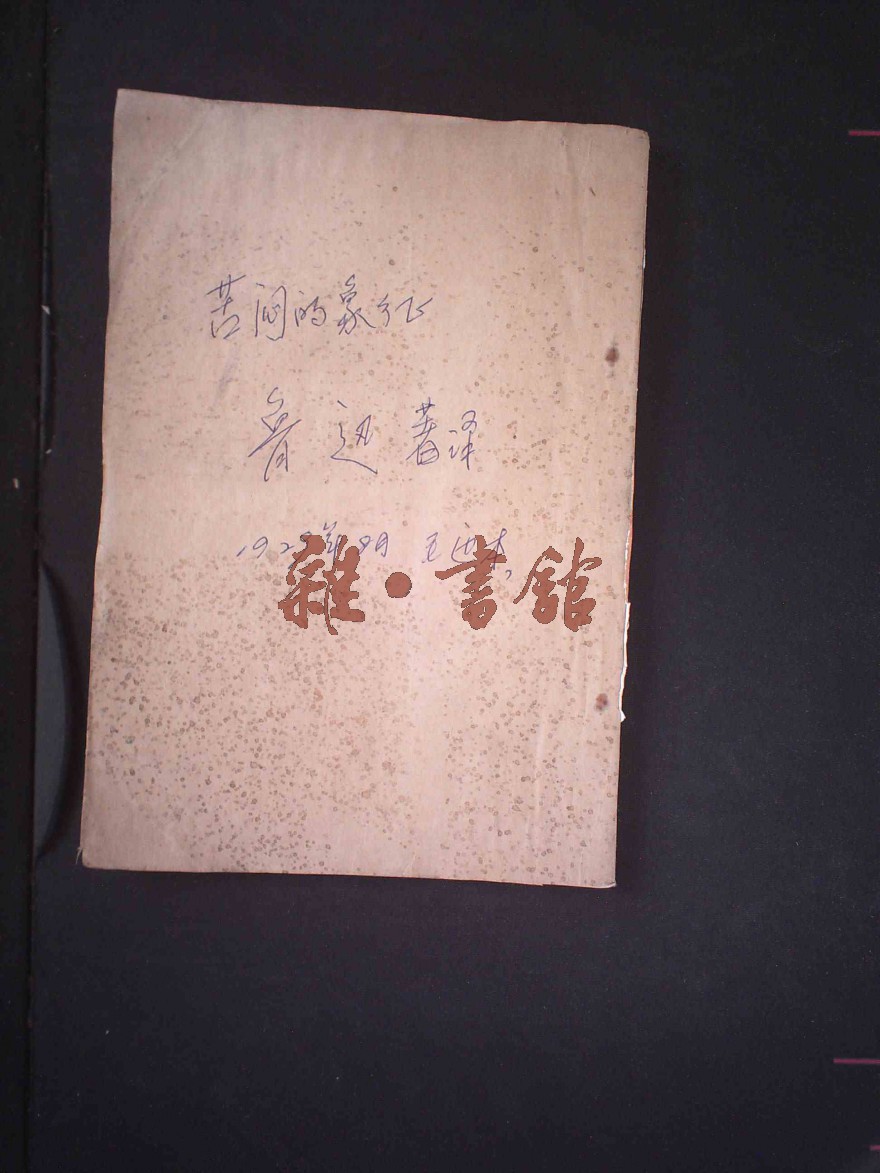 苦闷的象征
鲁迅 著译
192 年 月 王
雜·書館